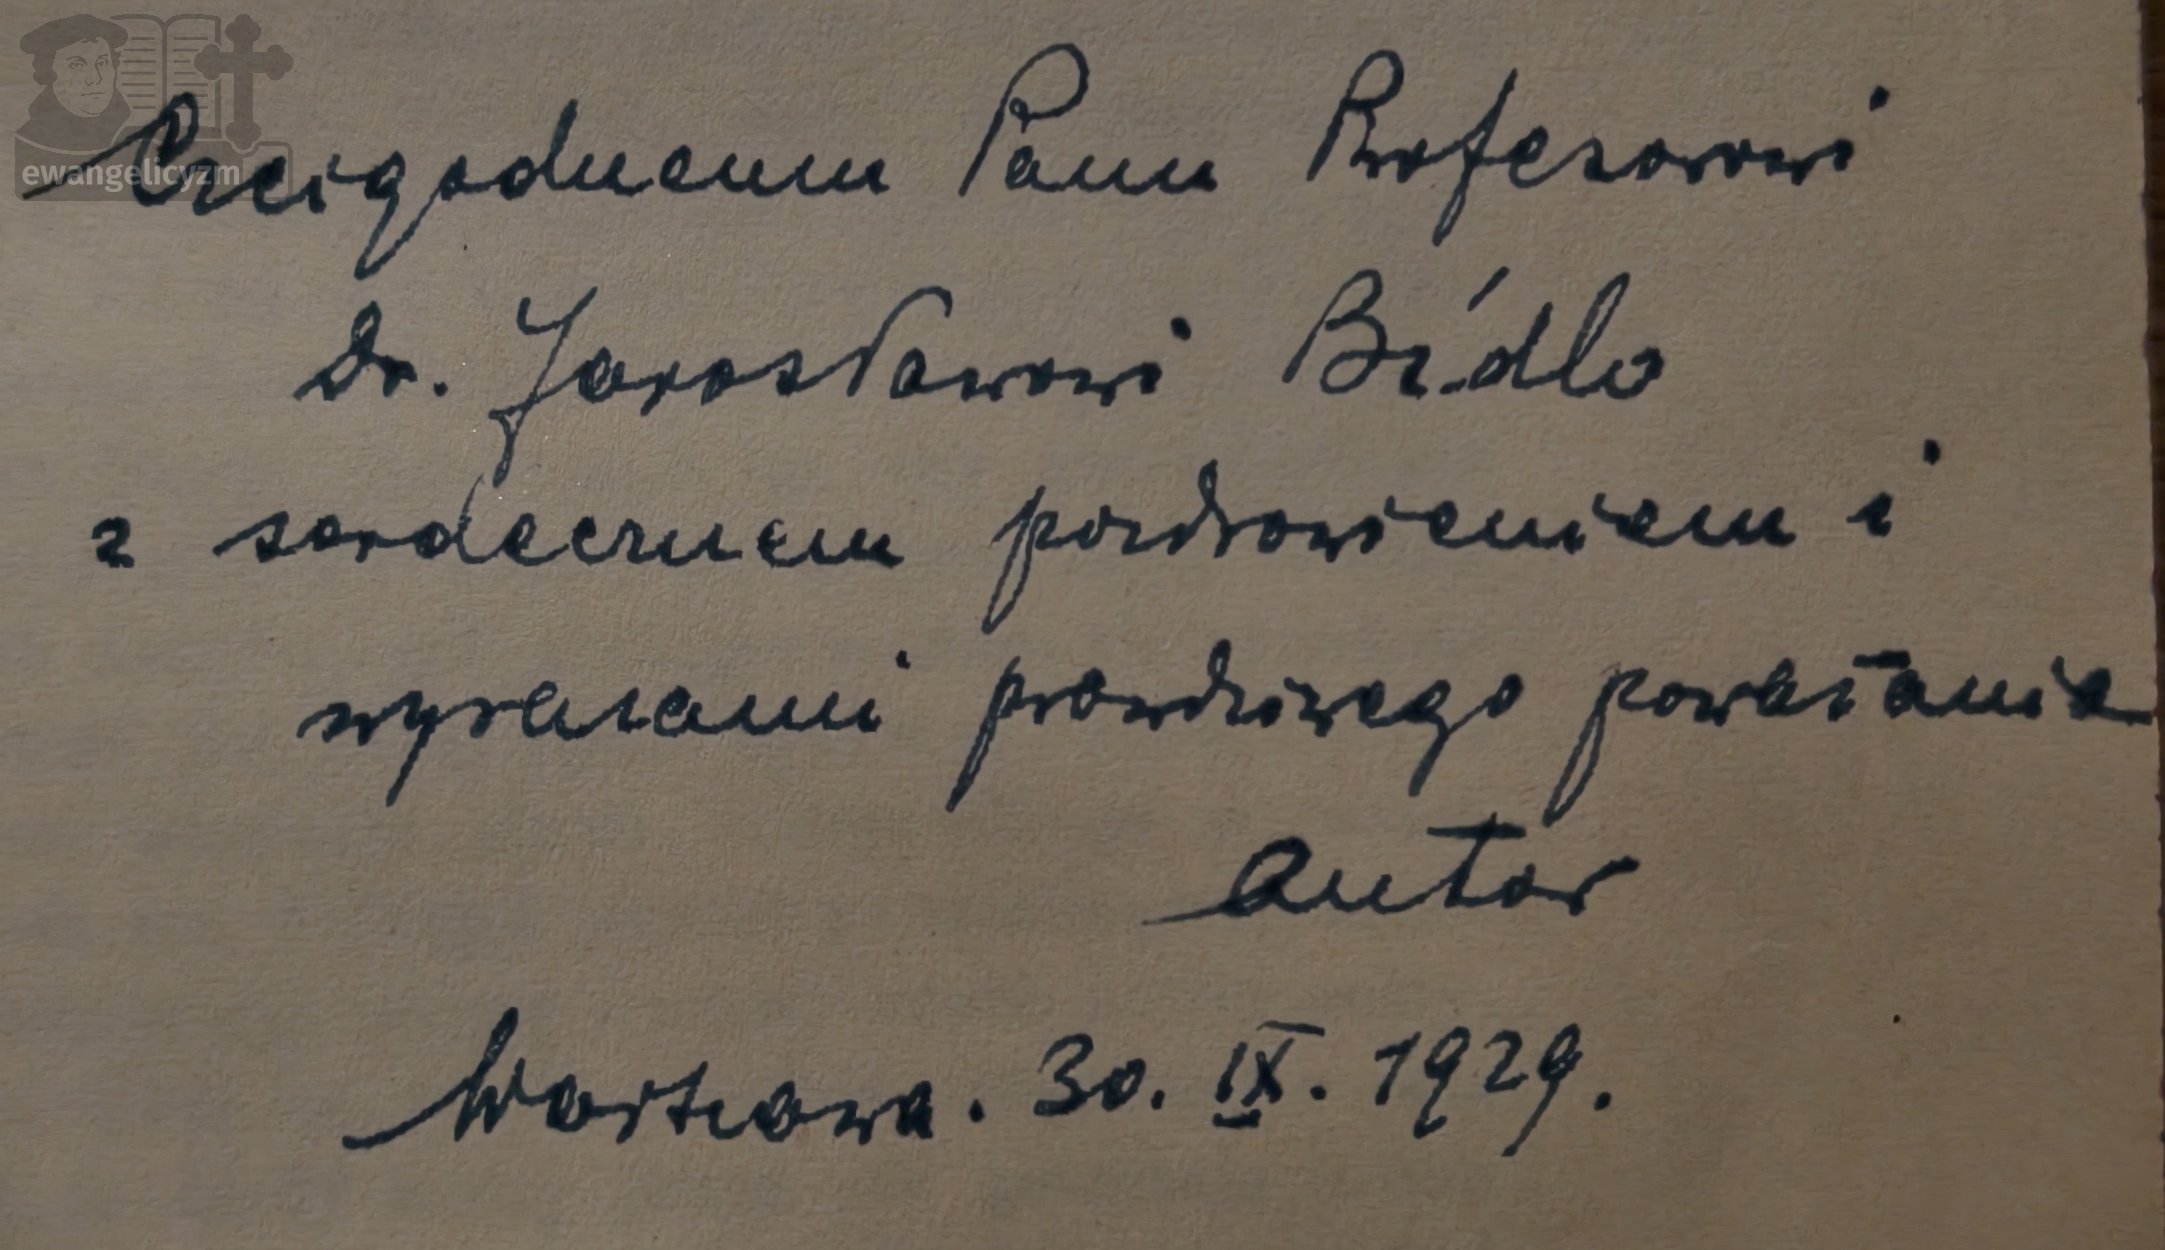 ewangelicyzm
Czcigodnemu Panu Profesorowi
Dr. Jarosławowi Bidlo
z serdecznem pozdrowieniem i
wyrazami prawdziwego poważania
Autor
Warszawa. 30. IX. 1929.